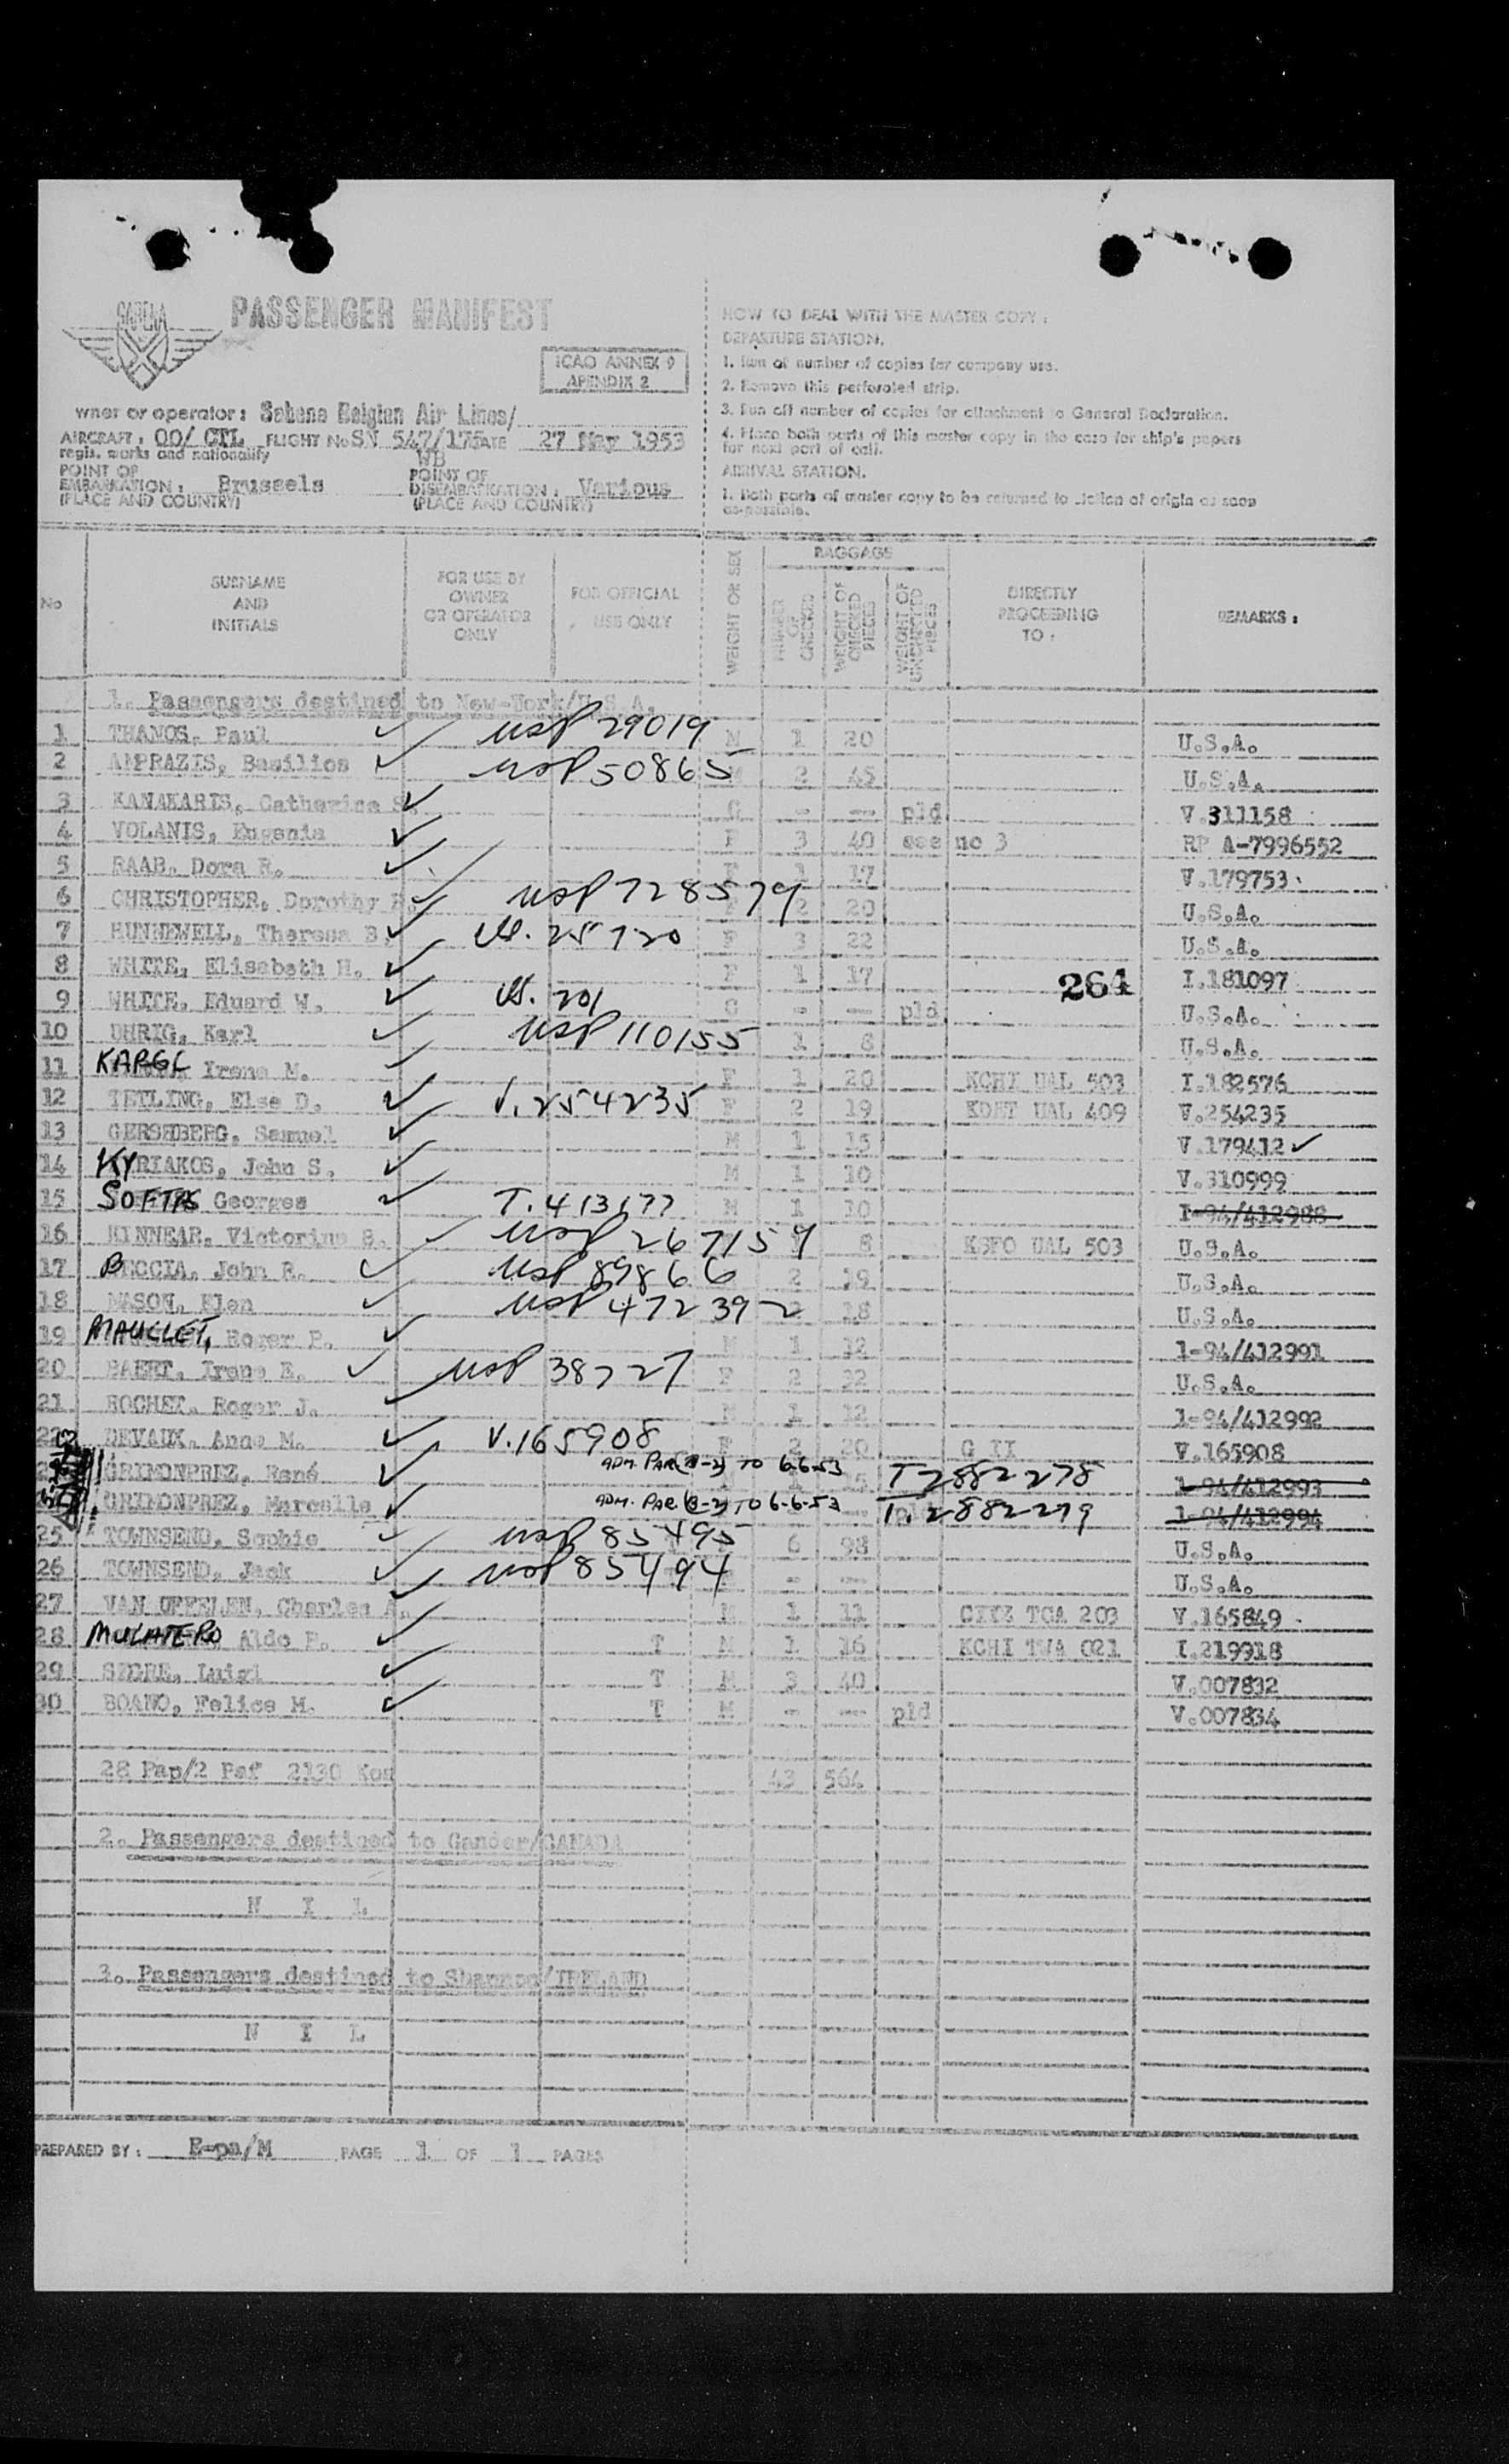 SABENA
PASSENGER MANIFEST
ICAO ANNEX 9
APENDIX 2
wner or operator: Sabena Belgian Air Lines/
AIRCRAFT: OO/ CTL FLIGHT No SN 547/175 DATE 27 May 1953
regis. marks and nationality WB
POINT OF EMBARKATION: Brussels POINT OF DISEMBARKATION: Various
(PLACE AND COUNTRY) (PLACE AND COUNTRY)
HOW TO DEAL WITH THE MASTER COPY:
DEPARTURE STATION.
1. Run of number of copies for company use.
2. Remove this perforated strip.
3. Run off number of copies for attachment to General Declaration.
4. Place both parts of this master copy in the case for ship's papers
for next port of call.
ARRIVAL STATION.
1. Both parts of master copy to be returned to station of origin as soon
as possible.
No SURNAME AND INITIALS FOR USE BY OWNER OR OPERATOR ONLY FOR OFFICIAL USE ONLY WEIGHT OR SEX BAGGAGE NUMBER OF CHECKED WEIGHT OF CHECKED PIECES WEIGHT OF UNCHECKED PIECES DIRECTLY PROCEEDING TO: REMARKS:
1. Passengers destined to New-York/U.S.A.
1 THANOS, Paul ✓ usp 29019 M 1 20 U.S.A.
2 AMPRAZIS, Basilios ✓ usp 50865 M 2 45 U.S.A.
3 KANAKARIS, Catherica S. ✓ C - - pld V.311158
4 VOLANIS, Eugenia ✓ F 3 40 see no 3 RP A-7996552
5 RAAB, Dora R. ✓ F 1 17 V.179753
6 CHRISTOPHER, Dorothy ✓ usp 728579 F 2 20 U.S.A.
7 HUNNEWELL, Theresa B. ✓ 25720 F 3 22 U.S.A.
8 WHITE, Elisabeth H. ✓ F 1 17 264 I.181097
9 WHITE, Eduard W. ✓ 201 C - - pld U.S.A.
10 UHRIG, Karl ✓ usp 110155 1 8 U.S.A.
11 KARGL Irene M. ✓ F 1 20 KCHI UAL 503 I.182576
12 TETLING, Else D. ✓ V.254235 F 2 19 KDET UAL 409 V.254235
13 GERSHBERG, Samuel ✓ M 1 15 V.179412 ✓
14 KYRIAKOS, John S. ✓ M 1 10 V.310999
15 SOFTAS Georges ✓ T.413177 M 1 10 I-94/412988
16 KINNEAR, Victorine S. ✓ usp 267159 8 KSFO UAL 503 U.S.A.
17 BECCIA, John R. ✓ usp 89866 2 19 U.S.A.
18 MASON, Elen ✓ usp 472392 18 U.S.A.
19 MAUCLET, Roger P. ✓ M 1 12 1-94/412991
20 BAERT, Irene E. ✓ usp 38727 F 2 22 U.S.A.
21 ROCHET, Roger J. ✓ M 1 12 1-94/412992
22 DEVAUX, Anne M. ✓ V.165908 F 2 20 G II V.165908
GRIMONPREZ, René ✓ ADM. PAR (B-2) TO 6-6-53 T2882278 1-94/412993
GRIMONPREZ, Marcelle ✓ ADM. PAR. (B-2) TO 6-6-53 T.2882279 1-94/412994
25 TOWNSEND, Sophie ✓ usp 85495 6 98 U.S.A.
26 TOWNSEND, Jack ✓ usp 85494 - - U.S.A.
27 VAN UFFELEN, Charles A. ✓ M 1 11 CYYZ TCA 203 V.165849
28 MULATERO Aldo P. ✓ T M 1 16 KCHI TWA 021 I.219918
29 SEGRE, Luigi ✓ T M 3 40 V.007832
30 BOANO, Felice M. ✓ T M - - pld V.007834
28 Pap/2 Paf 2130 Kos 43 564
2. Passengers destined to Gander/CANADA
N I L
3. Passengers destined to Shannon/IRELAND
N I L
PREPARED BY: E-pa/M PAGE 1 OF 1 PAGES